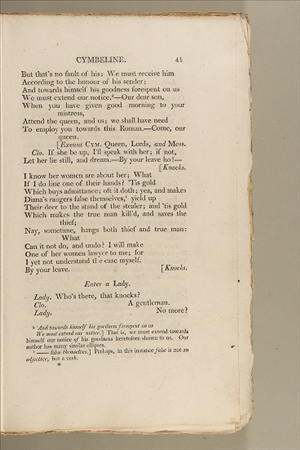 CYMBELINE. 41
But that's no fault of his: We must receive him
According to the honour of his sender;
And towards himself his goodness forespent on us
We must extend our notice.⁶—Our dear son,
When you have given good morning to your
mistress,
Attend the queen, and us; we shall have need
To employ you towards this Roman.—Come, our
queen.
[Exeunt CYM. Queen, Lords, and Mess.
Clo. If she be up, I'll speak with her; if not,
Let her lie still, and dream.—By your leave ho!—
[Knocks.
I know her women are about her; What
If I do line one of their hands? 'Tis gold
Which buys admittance; oft it doth; yea, and makes
Diana's rangers false themselves,⁷ yield up
Their deer to the stand of the stealer; and 'tis gold
Which makes the true man kill'd, and saves the
thief;
Nay, sometime, hangs both thief and true man:
What
Can it not do, and undo? I will make
One of her women lawyer to me; for
I yet not understand the case myself.
By your leave. [Knocks.
Enter a Lady.
Lady. Who's there, that knocks?
Clo. A gentleman.
Lady. No more?
⁶ And towards himself his goodness forespent on us
We must extend our notice.] That is, we must extend towards
himself our notice of his goodness heretofore shown to us. Our
author has many similar ellipses.
⁷ —— false themselves,] Perhaps, in this instance false is not an
adjective, but a verb.